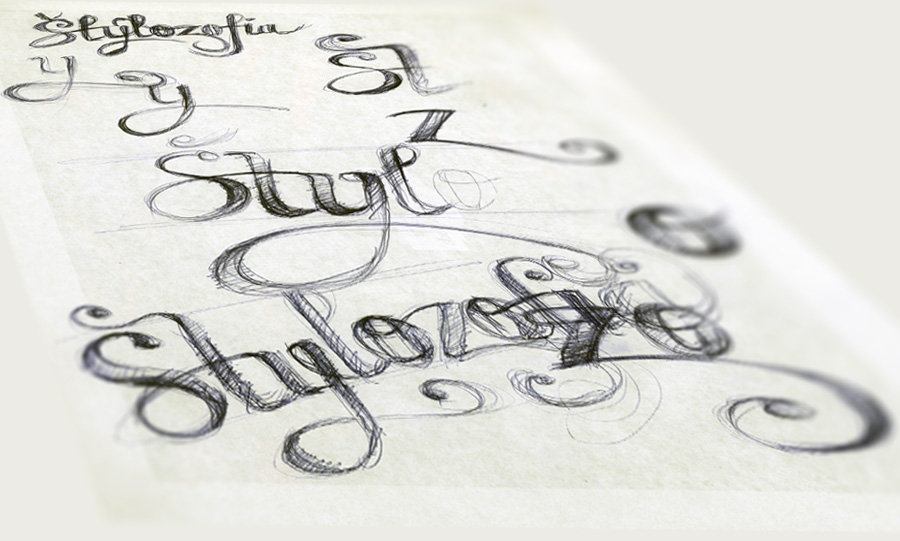 Štylozofia
y y Št
z
Štyl
Štylozofia